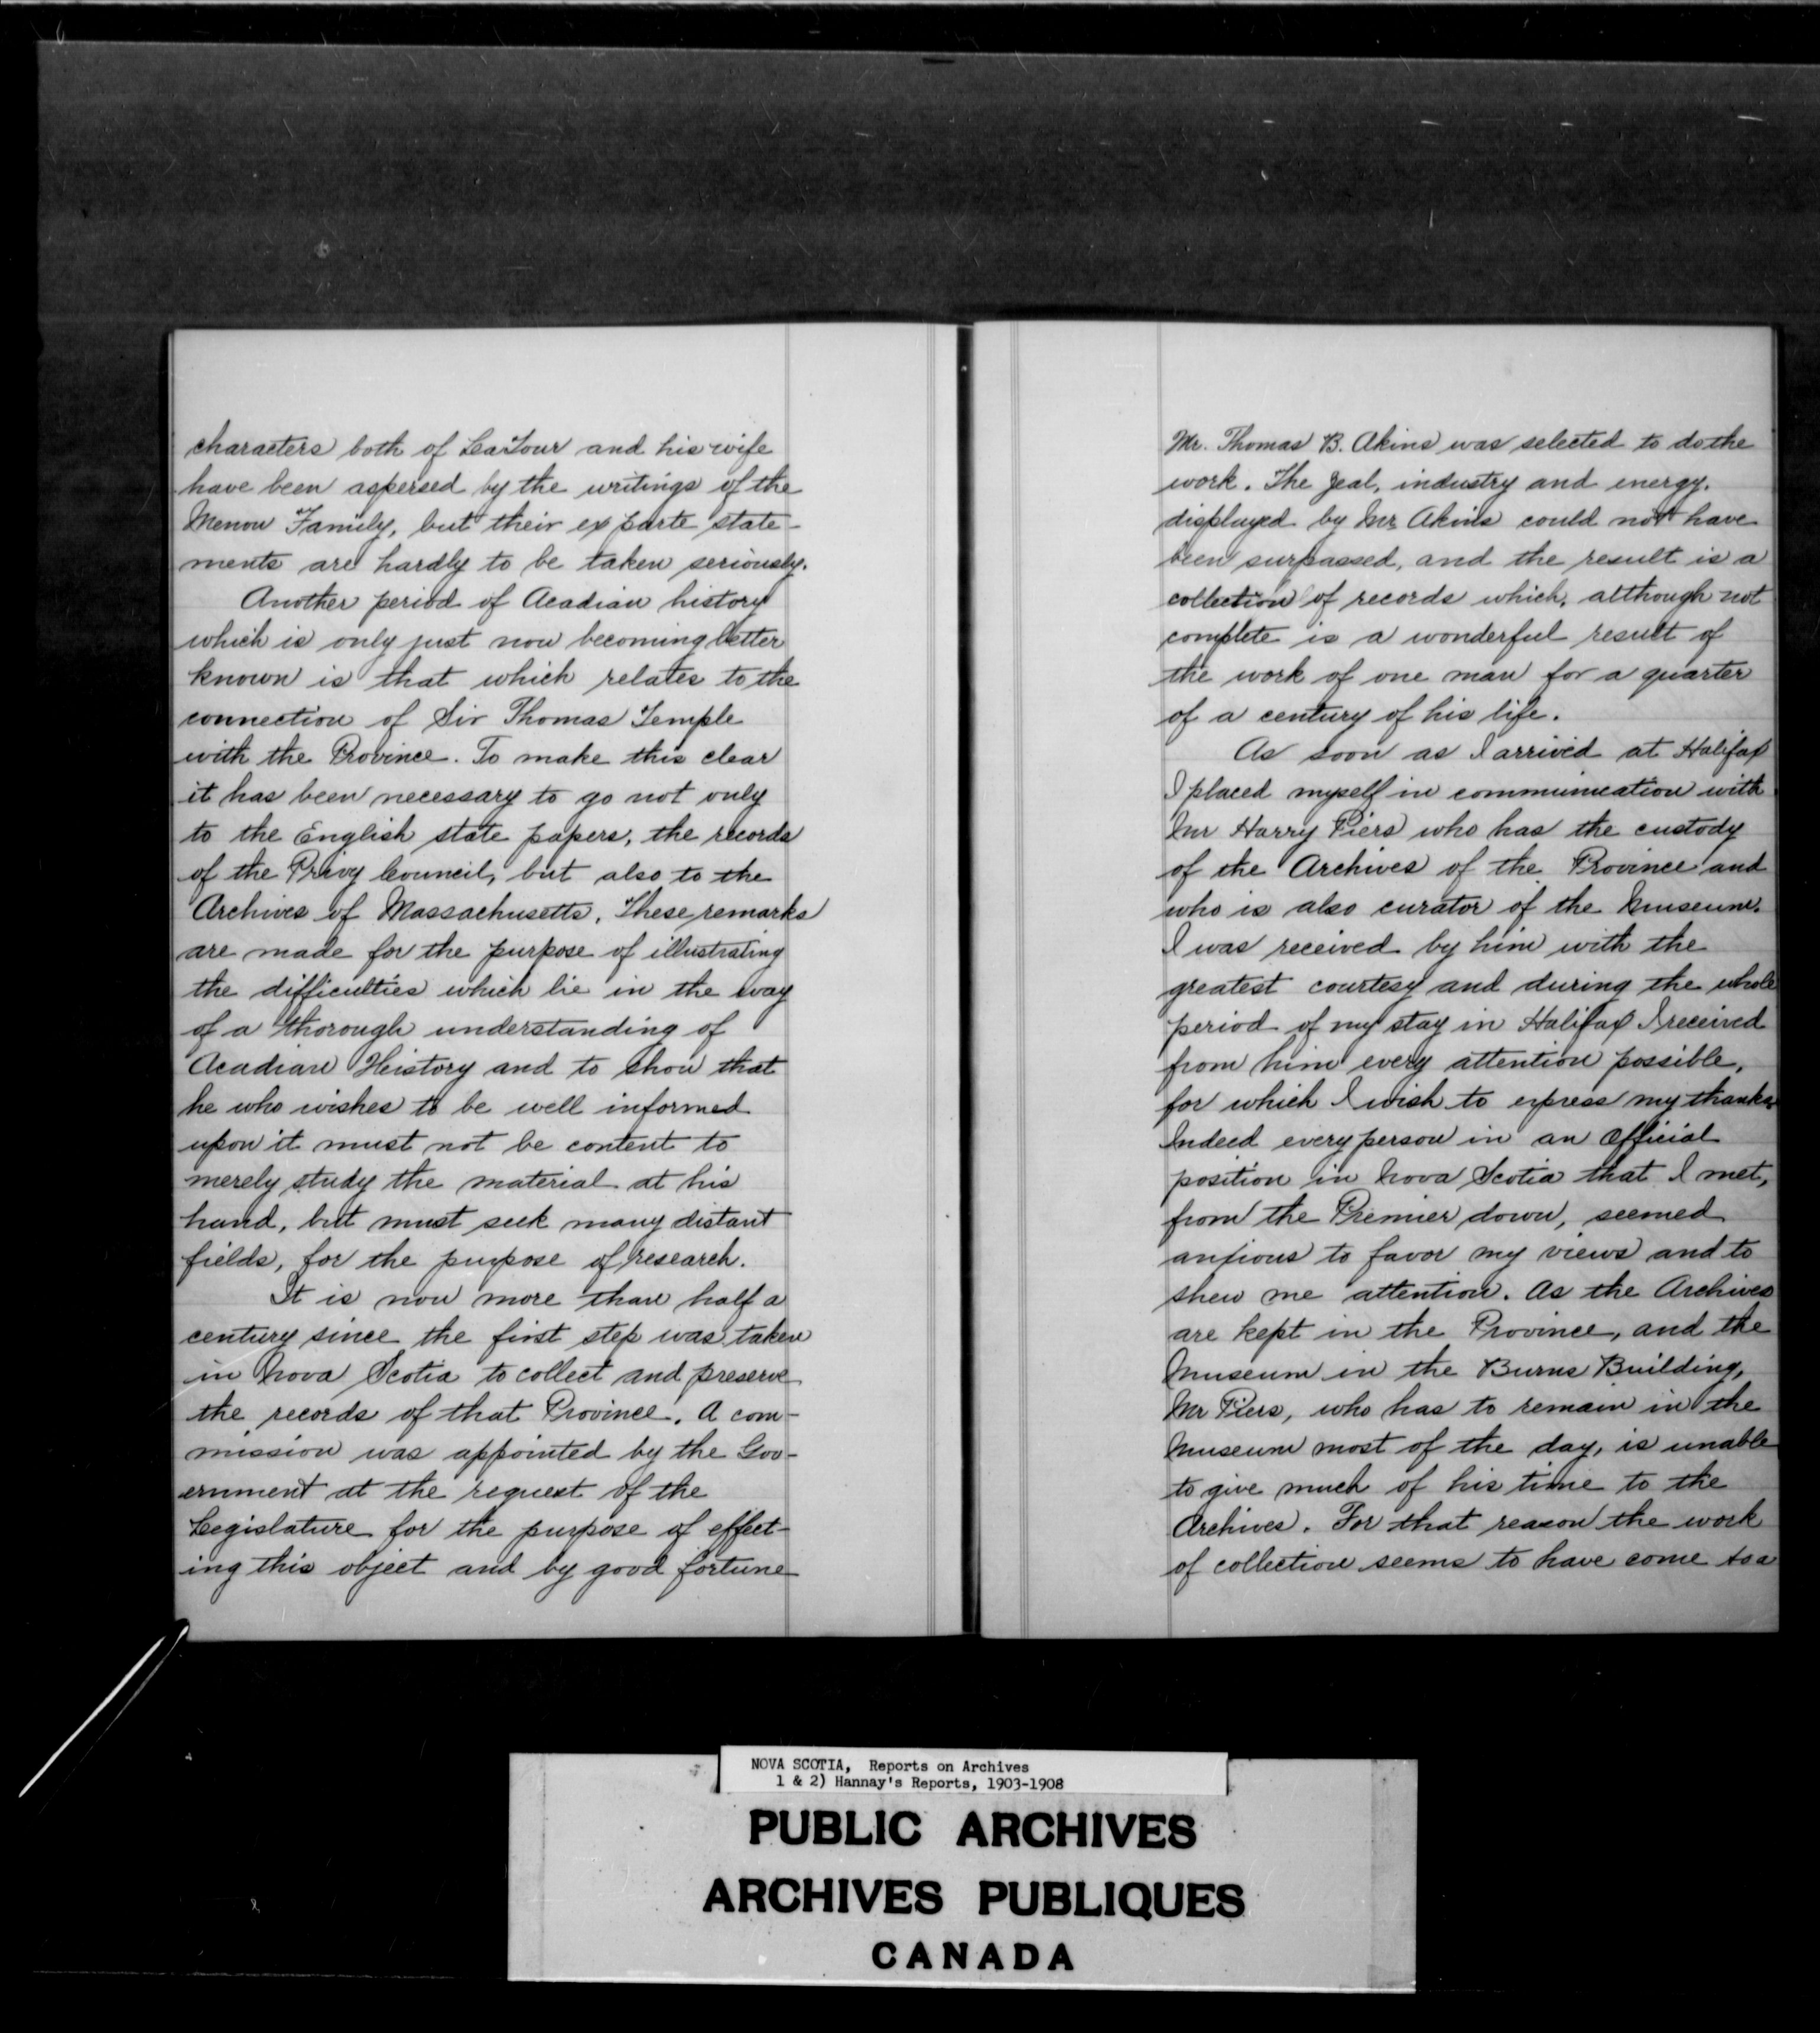 characters both of LaTour and his wife
have been aspersed by the writings of the
Menou Family, but their ex parte state-
ments are hardly to be taken seriously.
Another period of Acadian history
which is only just now becoming better
known is that which relates to the
connection of Sir Thomas Temple
with the Province. To make this clear
it has been necessary to go not only
to the English state papers, the records
of the Privy Council, but also to the
Archives of Massachusetts. These remarks
are made for the purpose of illustrating
the difficulties which lie in the way
of a thorough understanding of
Acadian History and to show that
he who wishes to be well informed
upon it must not be content to
merely study the material at his
hand, but must seek many distant
fields, for the purpose of research.
It is now more than half a
century since the first step was taken
in Nova Scotia to collect and preserve
the records of that Province. A com-
mission was appointed by the Gov-
ernment at the request of the
Legislature for the purpose of effect-
ing this object and by good fortune
Mr. Thomas B. Akins was selected to do the
work. The zeal, industry and energy.
displayed by Mr Akins could not have
been surpassed, and the result is a
collection of records which, although not
complete is a wonderful result of
the work of one man for a quarter
of a century of his life.
As soon as I arrived at Halifax
I placed myself in communication with
Mr Harry Piers who has the custody
of the Archives of the Province and
who is also curator of the Museum.
I was received by him with the
greatest courtesy and during the whole
period of my stay in Halifax I received
from him every attention possible,
for which I wish to express my thanks.
Indeed every person in an Official
position in Nova Scotia that I met,
from the Premier down, seemed
anxious to favor my views and to
shew me attention. As the Archives
are kept in the Province, and the
Museum in the Burns Building,
Mr Piers, who has to remain in the
Museum most of the day, is unable
to give much of his time to the
Archives. For that reason the work
of collection seems to have come to a
NOVA SCOTIA, Reports on Archives
1 & 2) Hannay's Reports, 1903-1908
PUBLIC ARCHIVES
ARCHIVES PUBLIQUES
CANADA